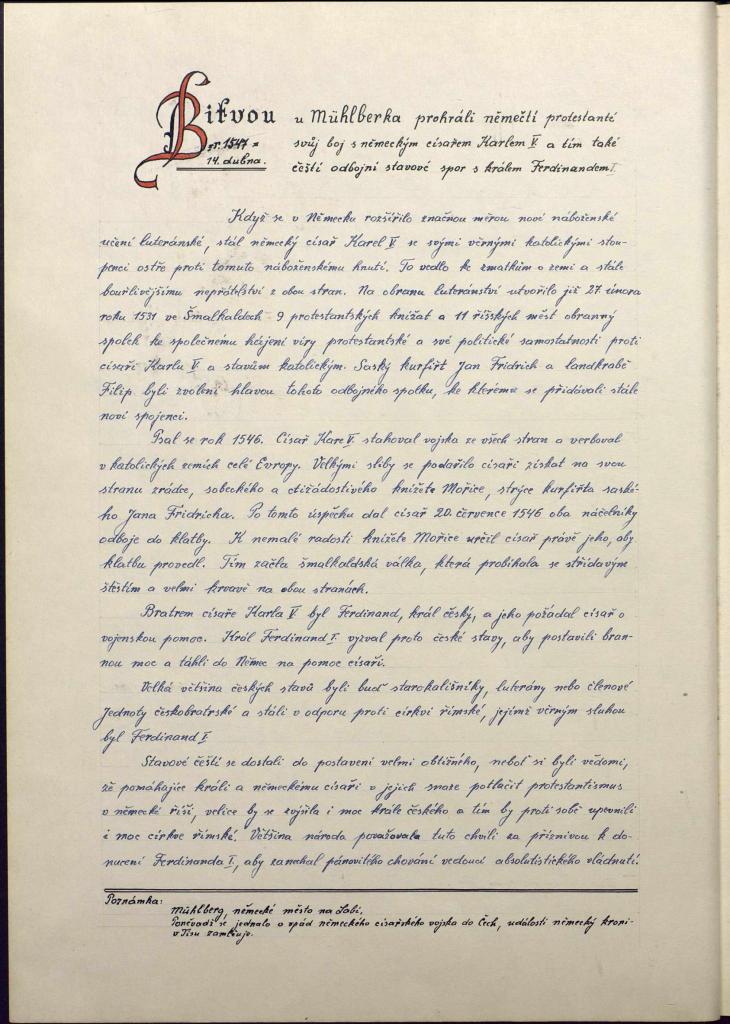 Bitvou u Mühlberka prohráli němečtí protestanté
=r. 1547=
14. dubna.
svůj boj s německým císařem Karlem V. a tím také
čeští odbojní stavové spor s králem Ferdinandem I.
Když se v Německu rozšířilo značnou měrou nové náboženské
učení luteránské, stál německý císař Karel V. se svými věrnými katolickými stou-
penci ostře proti tomuto náboženskému hnutí. To vedlo ke zmatkům v zemi a stále
bouřlivějšímu nepřátelství z obou stran. Na obranu luteránství utvořilo již 27. února
roku 1531 ve Šmalkaldech 9 protestantských knížat a 11 říšských měst obranný
spolek ke společnému hájení víry protestantské a své politické samostatnosti proti
císaři Karlu V. a stavům katolickým. Saský kurfiřt Jan Fridrich a landkrabě
Filip byli zvoleni hlavou tohoto odbojného spolku, ke kterému se přidávali stále
noví spojenci.
Psal se rok 1546. Císař Kare V. stahoval vojska ze všech stran a verboval
v katolických zemích celé Evropy. Velkými sliby se podařilo císaři získat na svou
stranu zrádce, sobeckého a ctižádostivého knížete Mořice, strýce kurfiřta saské-
ho Jana Fridricha. Po tomto úspěchu dal císař 20. července 1546 oba náčelníky
odboje do klatby. K nemalé radosti knížete Mořice určil císař právě jeho, aby
klatbu provedl. Tím začla šmalkaldská válka, která probíhala se střídavým
štěstím a velmi krvavě na obou stranách.
Bratrem císaře Karla V. byl Ferdinand, král český, a jeho požádal císař o
vojenskou pomoc. Král Ferdinand I. vyzval proto české stavy, aby postavili bran-
nou moc a táhli do Němec na pomoc císaři.
Velká většina českých stavů byli buď starokališníky, luterány nebo členové
Jednoty českobratrské a stáli v odporu proti církvi římské, jejímž věrným sluhou
byl Ferdinand I.
Stavové čeští se dostali do postavení velmi obtížného, neboť si byli vědomi,
že pomáhajíce králi a německému císaři v jejich snaze potlačit protestantismus
v německé říši, velice by se zvýšila i moc krále českého a tím by proti sobě upevnili
i moc církve římské. Většina národa považovala tuto chvíli za příznivou k do-
nucení Ferdinanda I., aby zanechal pánovitého chování vedoucí absolutistického vládnutí.
Poznámka:
Mühlberg, německé město na Labi.
Poněvadž se jednalo o vpád německého císařského vojska do Čech, události německý kroni-